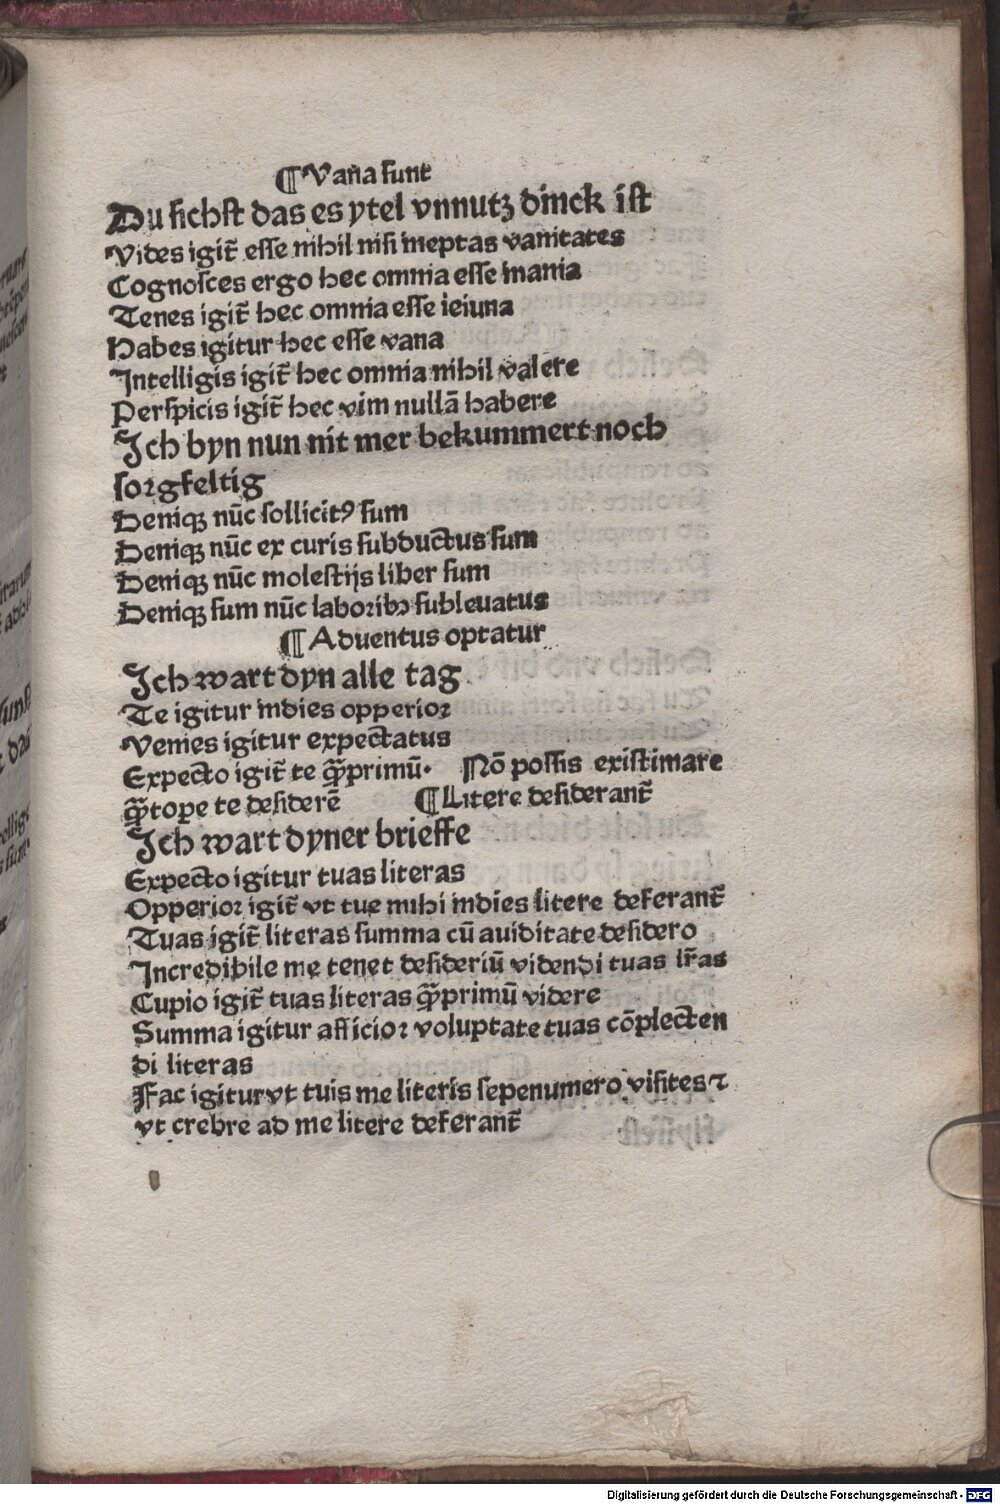 ¶ Vana sunt
Du sichst das es ytel vnnutz dinck ist
Vides igit̃ esse nihil nisi ineptas vanitates
Cognosces ergo hec omnia esse inania
Tenes igit̃ hec omnia esse ieiuna
Habes igitur hec esse vana
Intelligis igit̃ hec omnia nihil valere
Perspicis igit̃ hec vim nullā habere
Ich byn nun nit mer bekummert noch
sorgfeltig
Deniqꝫ nūc sollicitꝰ sum
Deniqꝫ nūc ex curis subductus sum
Deniqꝫ nūc molestijs liber sum
Deniqꝫ sum nūc laboribꝫ subleuatus
¶ Aduentus optatur
Ich wart dyn alle tag
Te igitur indies opperior
Venies igitur expectatus
Expecto igit̃ te q̄ꝫprimū. Nō possis existimare
q̄ꝫtope te desiderē ¶ Litere desiderant̃
Ich wart dyner brieffe
Expecto igitur tuas literas
Opperior igit̃ vt tue mihi indies litere deferant̃
Tuas igit̃ literas summa cū auiditate desidero
Incredibile me tenet desideriū videndi tuas lr̄as
Cupio igit̃ tuas literas q̄ꝫprimū videre
Summa igitur afficior voluptate tuas cōplecten
di literas
Fac igitur vt tuis me literis sepenumero visites ⁊
vt crebre ad me litere deferant̃
Digitalisierung gefördert durch die Deutsche Forschungsgemeinschaft - DFG